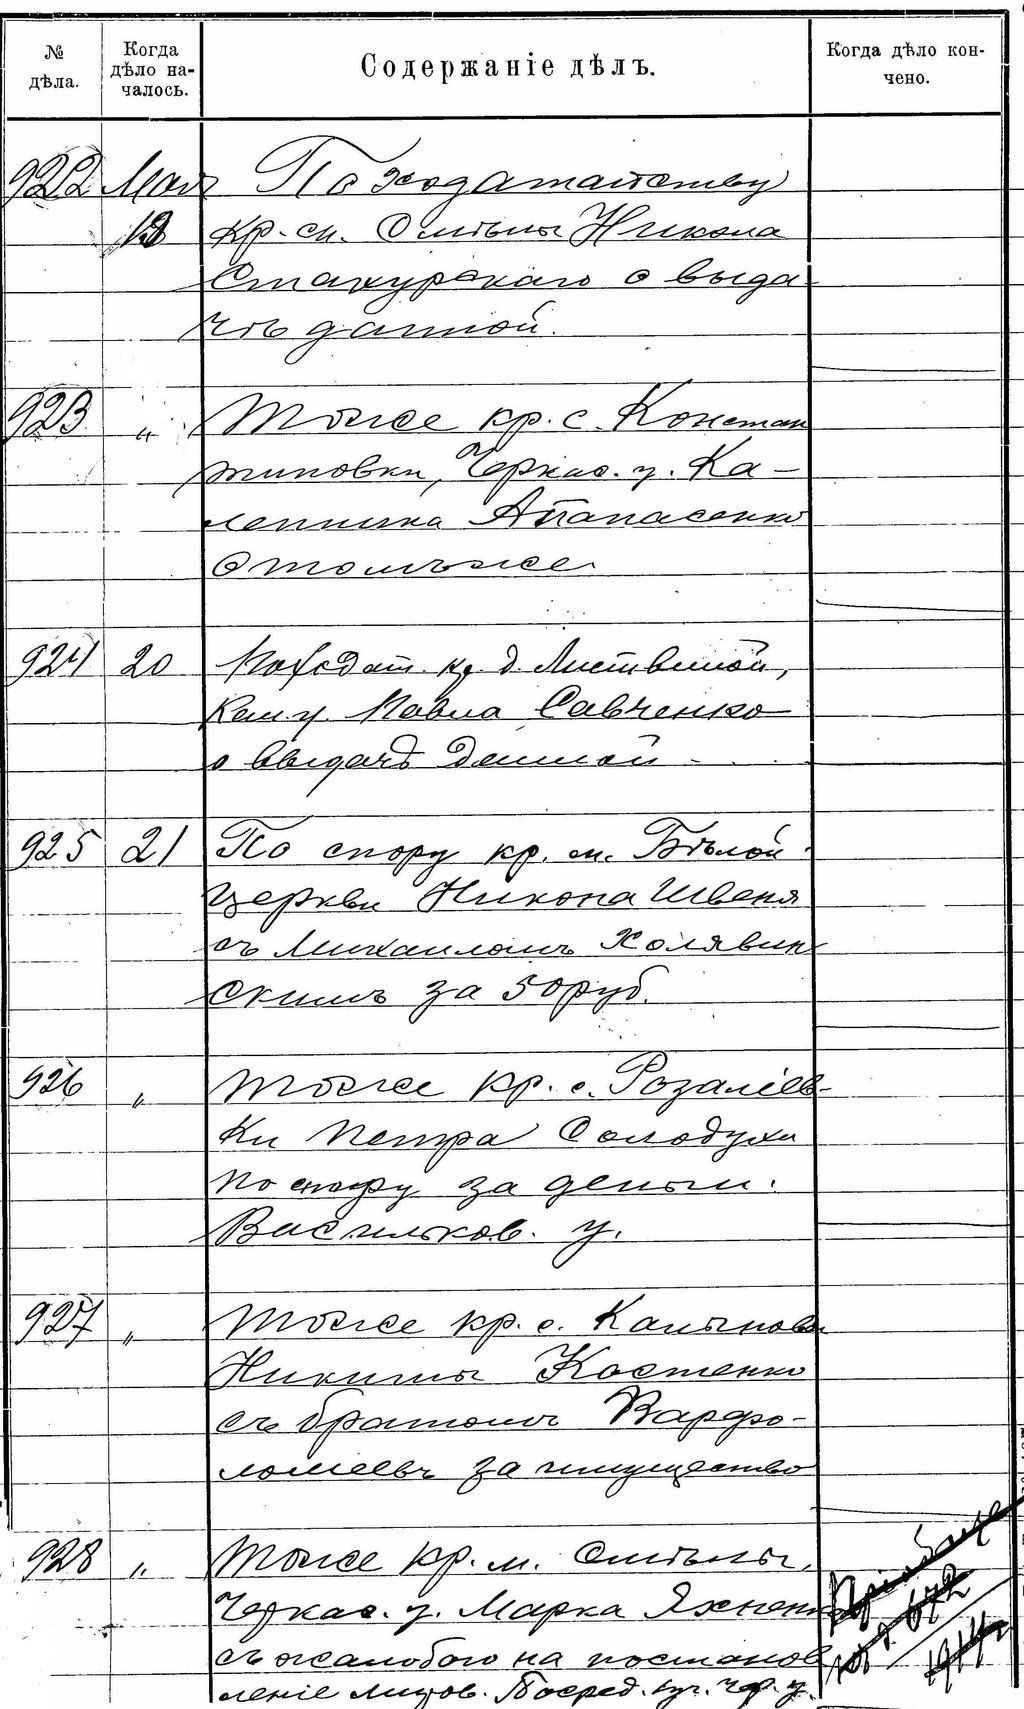 № дѣла.
Когда дѣло началось.
Содержаніе дѣлъ.
Когда дѣло кончено.
922 Мая 18 По ходатайству
кр. м. Смѣлы Никола
Стахурскаго о выда-
чѣ данной.
923 „ Тоже кр. с. Констан
тиновки, Черкас. у. Ка-
ленника Апанасенко
О томъ же
924 20 По ходат. кр. д. Листвиной,
Кан. у. Павла Савченко
о выдачѣ данной
925 21 По спору кр. м. Бѣлой
Церкви Никона Швеня
съ Михаиломъ Холявин
скимъ за 50 руб.
926 „ Тоже кр. с. Розаліев-
ки Петра Солодухи
по спору за деньги.
Васильков. у.
927 „ Тоже кр. с.
Никиты Костенко
съ братомъ Варфо-
ломеевъ за имущество
928 „ Тоже кр. м. Смѣлы,
Черкас. у. Марка Яхненко
съ жалобою на постанов
леніе Миров. Посред. уч. Чер. у.
672
1914